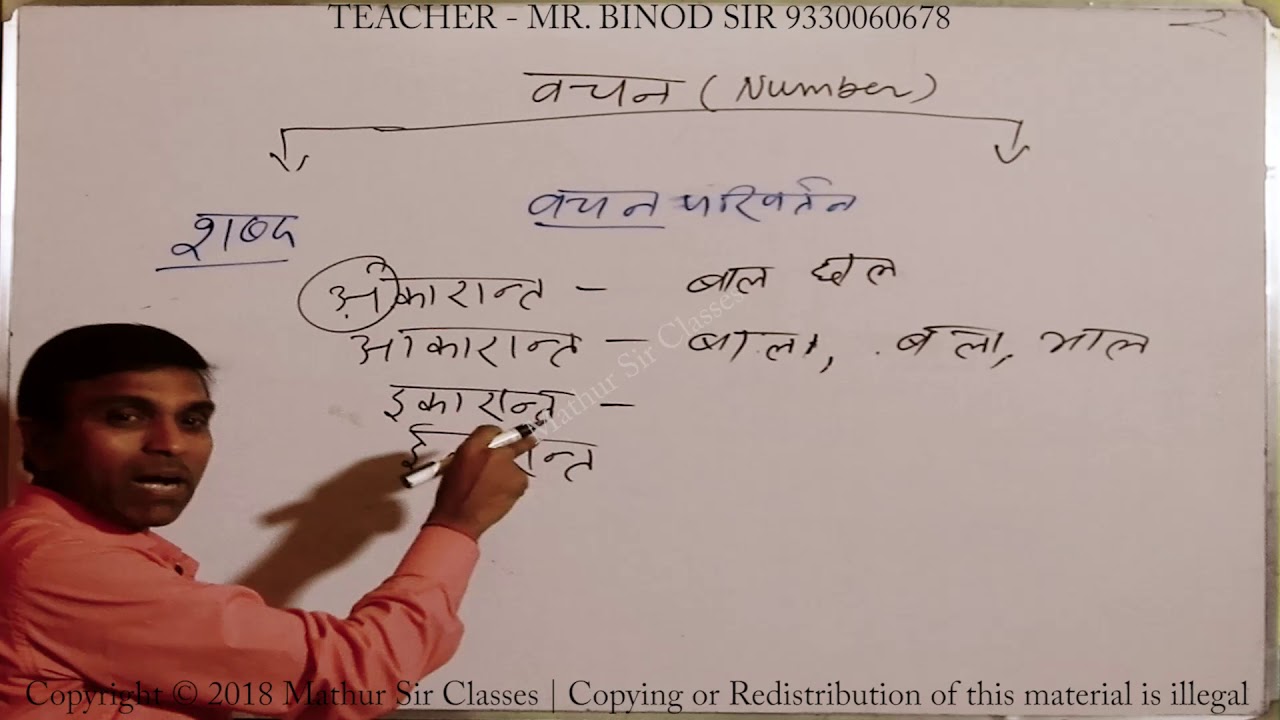 TEACHER - MR. BINOD SIR 9330060678
वचन (Number)
वचन परिवर्तन
शब्द
अकारान्त - बाल
आकारान्त - बाला, बेला, माल
इकारान्त -
Mathur Sir Classes
Copyright © 2018 Mathur Sir Classes | Copying or Redistribution of this material is illegal